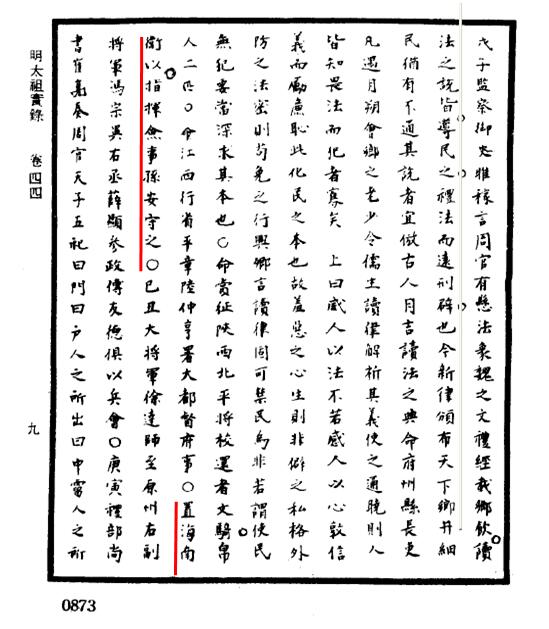 戊子監察御史雎稼言周官有懸法象魏之文禮經載鄉飲讀
法之說皆導民之禮法而遠刑辟也今新律頒布天下鄉井細
民猶有不通其說者宜倣古人月言讀法之典命府州縣長吏
凡遇月朔會鄉之老少令儒生讀律解析其義使之通曉則人
皆知畏法而犯者寡矣　上曰威人以法不若感人以心敦信
義而勵廉恥此化民之本也故羞惡之心生則非僻之私格外
防之法密則苟免之行興卿言讀律固可禁民為非若謂使民
無犯要當深求其本也○命賞征陝西北平將校還者文騎帛
人二匹○命江西行省平章陸仲亨署大都督府事○置海南
衛以指揮僉事孫安守之○己丑大將軍徐達師至原州右副
將軍馮宗異右丞薛顯參政傅友德俱以兵會○庚寅禮部尚
書崔亮奏周官天子五祀曰門曰戶人之所出曰中霤人之所
明太祖實錄　卷四四
九
0873